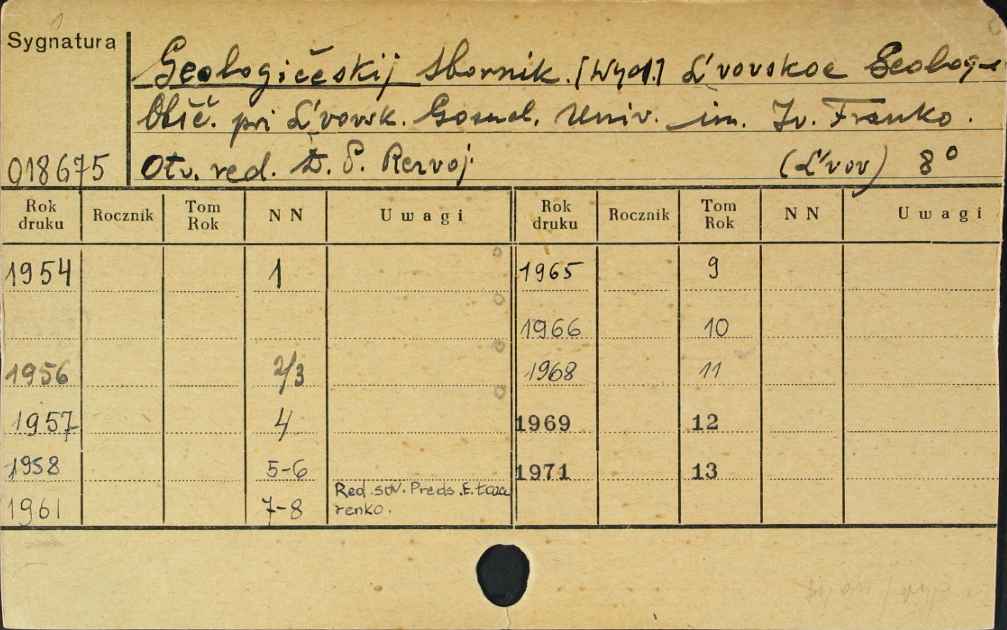 Sygnatura
Geologičeskij sbornik. [Wyd.] L'vovskoe Geolog.
Obšč. pri L'vovsk. Gosud. Univ. im. Iv. Franko.
018675 Otv. red. D. P. Rezvoj (L'vov) 8°
Rok druku Rocznik Tom Rok N N Uwagi Rok druku Rocznik Tom Rok N N Uwagi
1954 1 1965 9
1966 10
1956 2/3 1968 11
1957 4 1969 12
1958 5-6 1971 13
Red. sov. Preds. E.
1961 7-8 renko.